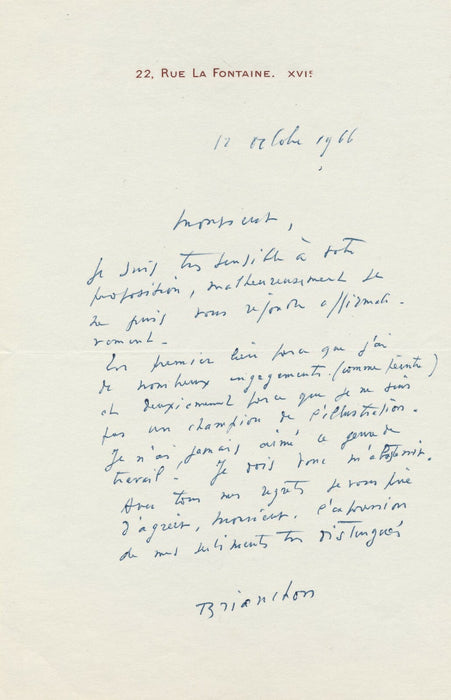 22, RUE LA FONTAINE. XVIᵉ
12 octobre 1966
Monsieur,
Je suis très sensible à votre
proposition, malheureusement je
ne puis vous répondre affirmati-
vement.
En premier lieu parce que j'ai
de nombreux engagements (comme peintre)
et deuxièmement parce que je ne suis
pas un champion de l'illustration.
Je n'ai jamais aimé ce genre de
travail. Je dois donc m'abstenir.
Avec tous mes regrets je vous prie
d'agréer, Monsieur, l'expression
de mes sentiments très distingués
Brianchon